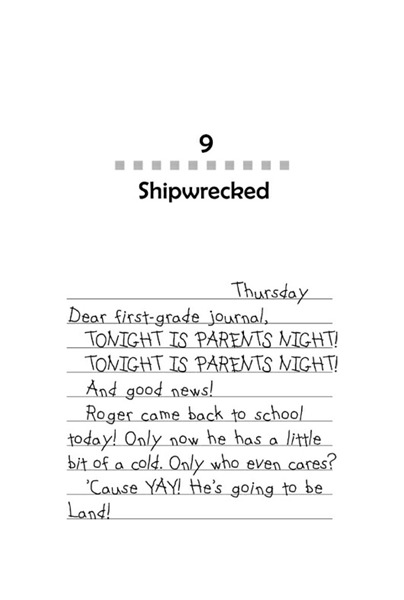 9
Shipwrecked
Thursday
Dear first-grade journal,
TONIGHT IS PARENTS NIGHT!
TONIGHT IS PARENTS NIGHT!
And good news!
Roger came back to school
today! Only now he has a little
bit of a cold. Only who even cares?
'Cause YAY! He's going to be
Land!